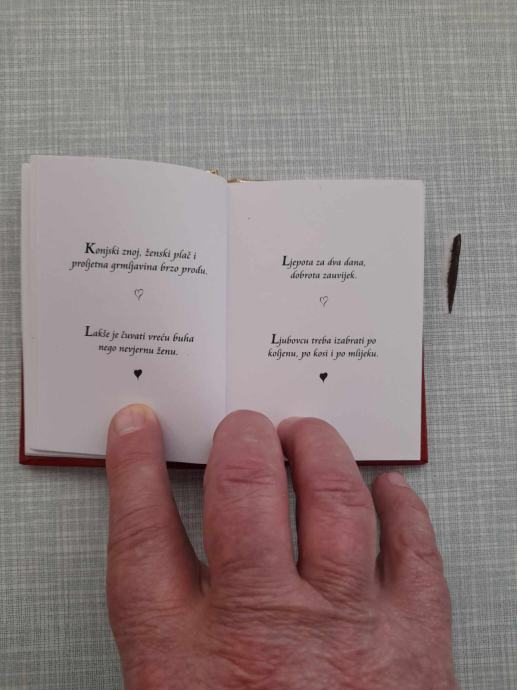 Konjski znoj, ženski plač i
proljetna grmljavina brzo prođu.
Lakše je čuvati vreću buha
nego nevjernu ženu.
Ljepota za dva dana,
dobrota zauvijek.
Ljubovcu treba izabrati po
koljenu, po kosi i po mlijeku.